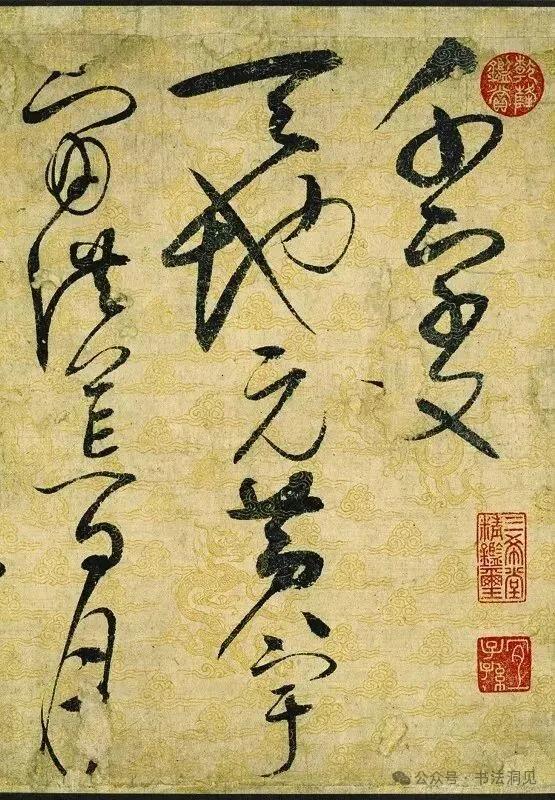 千字文
天地元黄宇
宙洪荒日月
乾隆鑑賞
三希堂精鑑璽
宜子孫
公众号·书法洞见